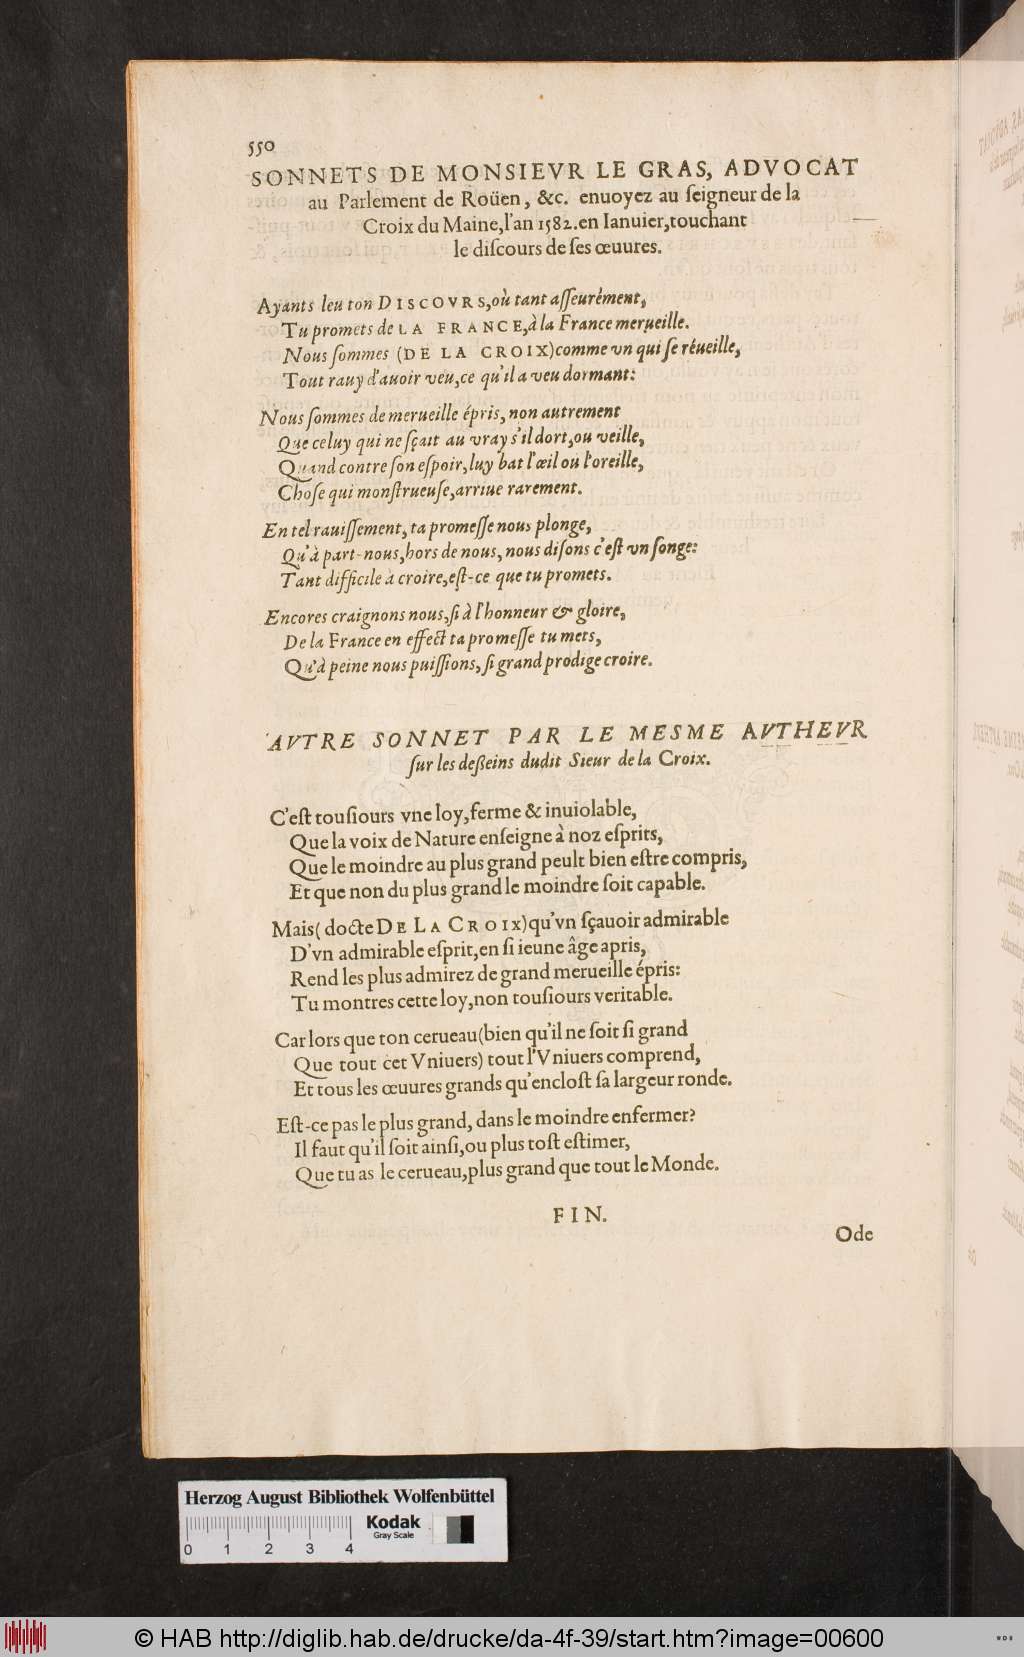 550
SONNETS DE MONSIEVR LE GRAS, ADVOCAT
au Parlement de Roüen, &c. enuoyez au ſeigneur de la
Croix du Maine, l'an 1582. en Ianuier, touchant
le diſcours de ſes œuures.
Ayants leu ton DISCOVRS, où tant aſſeurément,
Tu promets de LA FRANCE, à la France merueille.
Nous ſommes (DE LA CROIX) comme vn qui ſe réueille,
Tout rauy d'auoir veu, ce qu'il a veu dormant:
Nous ſommes de merueille épris, non autrement
Que celuy qui ne ſçait au vray s'il dort, ou veille,
Quand contre ſon eſpoir, luy bat l'œil ou l'oreille,
Choſe qui monſtrueuſe, arriue rarement.
En tel rauiſſement, ta promeſſe nous plonge,
Qu'à part-nous, hors de nous, nous diſons c'eſt vn ſonge:
Tant difficile à croire, eſt-ce que tu promets.
Encores craignons nous, ſi à l'honneur & gloire,
De la France en effect ta promeſſe tu mets,
Qu'à peine nous puiſſions, ſi grand prodige croire.
AVTRE SONNET PAR LE MESME AVTHEVR
ſur les deßeins dudit Sieur de la Croix.
C'eſt touſiours vne loy, ferme & inuiolable,
Que la voix de Nature enſeigne à noz eſprits,
Que le moindre au plus grand peult bien eſtre compris,
Et que non du plus grand le moindre ſoit capable.
Mais (docte DE LA CROIX) qu'vn ſçauoir admirable
D'vn admirable eſprit, en ſi ieune âge apris,
Rend les plus admirez de grand merueille épris:
Tu montres cette loy, non touſiours veritable.
Car lors que ton cerueau (bien qu'il ne ſoit ſi grand
Que tout cet Vniuers) tout l'Vniuers comprend,
Et tous les œuures grands qu'encloſt ſa largeur ronde.
Eſt-ce pas le plus grand, dans le moindre enfermer?
Il faut qu'il ſoit ainſi, ou plus toſt eſtimer,
Que tu as le cerueau, plus grand que tout le Monde.
FIN.
Ode
Herzog August Bibliothek Wolfenbüttel
Kodak
Gray Scale
0 1 2 3 4
© HAB http://diglib.hab.de/drucke/da-4f-39/start.htm?image=00600